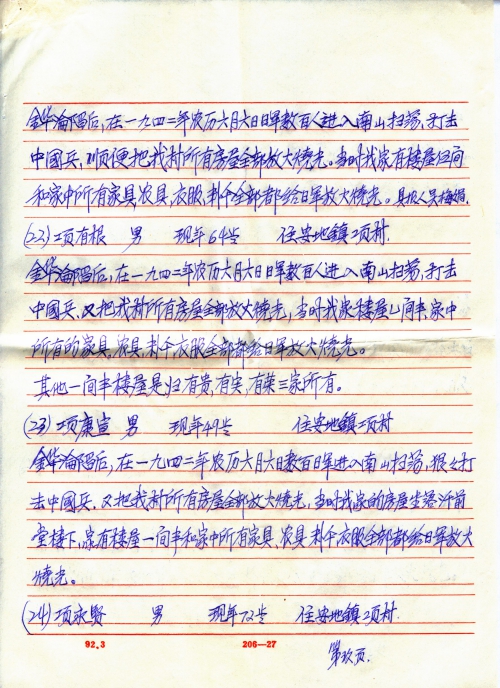 金华淪陷后,在一九四二年农历六月六日日軍数百人进入南山扫荡,打击
中國兵,順便把我村所有房屋全部放火燒光。当时我家有楼屋 间
和家中所有家具,农具,衣服, 全部都给日軍放火燒光。具报人吴 娟
(22)项有根 男 现年64岁 住安地鎮项村.
金华淪陷后,在一九四二年农历六月六日日軍数百人进入南山扫荡,打击
中國兵,又把我村所有房屋全部放火燒光,当时我家楼屋 间半,家中
所有的家具,浓具, 衣服全部都给日軍放火燒光。
其他一间半楼屋是归有贵,有实,有菜三家所有。
(23)项康宣 男 现年49岁 住安地鎮项村
金华淪陷后,在一九四二年农历六月六日数百日军进入南山扫荡,狠々打
击中國兵,又把我村所有房屋全部放火燒光,当时我家的房屋坐落 前
堂楼下,家有楼屋一间半和家中所有家具,农具 衣服全部都给日軍放火
燒光。
(24)项永贤 男 现年72岁 住安地鎮项村.
92.3 206—27
第玖页.